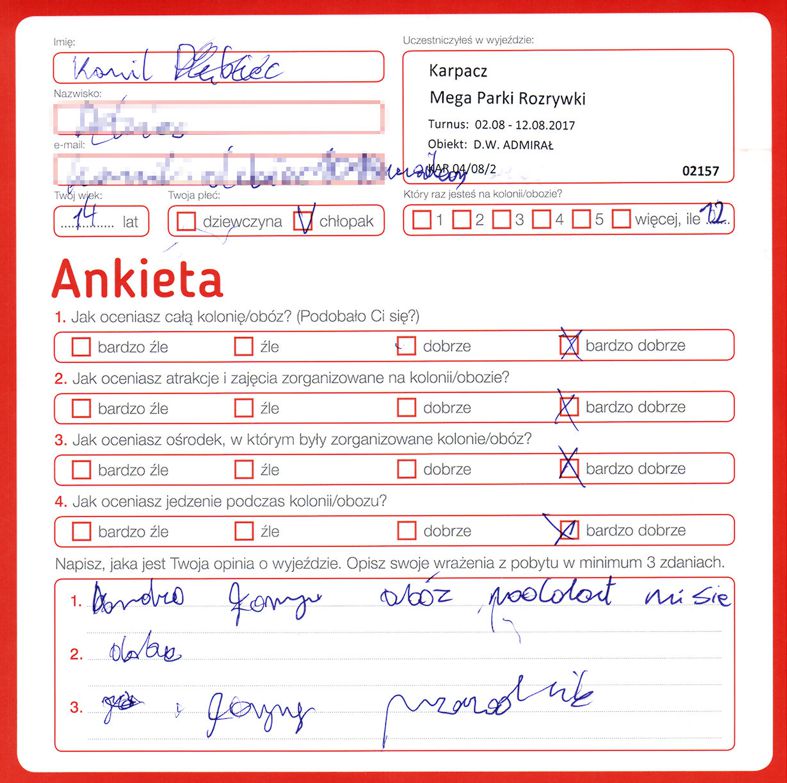 Imię:
Kamil
Nazwisko:
e-mail:
Twój wiek:
14 lat
Twoja płeć:
dziewczyna V chłopak
Uczestniczyłeś w wyjeździe:
Karpacz
Mega Parki Rozrywki
Turnus: 02.08 - 12.08.2017
Obiekt: D.W. ADMIRAŁ
KAR 04/08/2
02157
Który raz jesteś na kolonii/obozie?
1 2 3 4 5 więcej, ile 12
Ankieta
1. Jak oceniasz całą kolonię/obóz? (Podobało Ci się?)
bardzo źle źle dobrze X bardzo dobrze
2. Jak oceniasz atrakcje i zajęcia zorganizowane na kolonii/obozie?
bardzo źle źle dobrze X bardzo dobrze
3. Jak oceniasz ośrodek, w którym były zorganizowane kolonie/obóz?
bardzo źle źle dobrze X bardzo dobrze
4. Jak oceniasz jedzenie podczas kolonii/obozu?
bardzo źle źle dobrze X bardzo dobrze
Napisz, jaka jest Twoja opinia o wyjeździe. Opisz swoje wrażenia z pobytu w minimum 3 zdaniach.
1. obóz mi się
2.
3. i